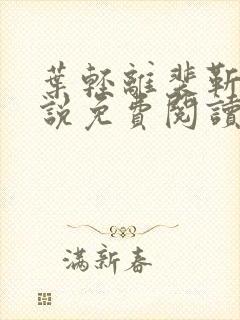 葉輕離裴靳
說免費閱讀
滿新春